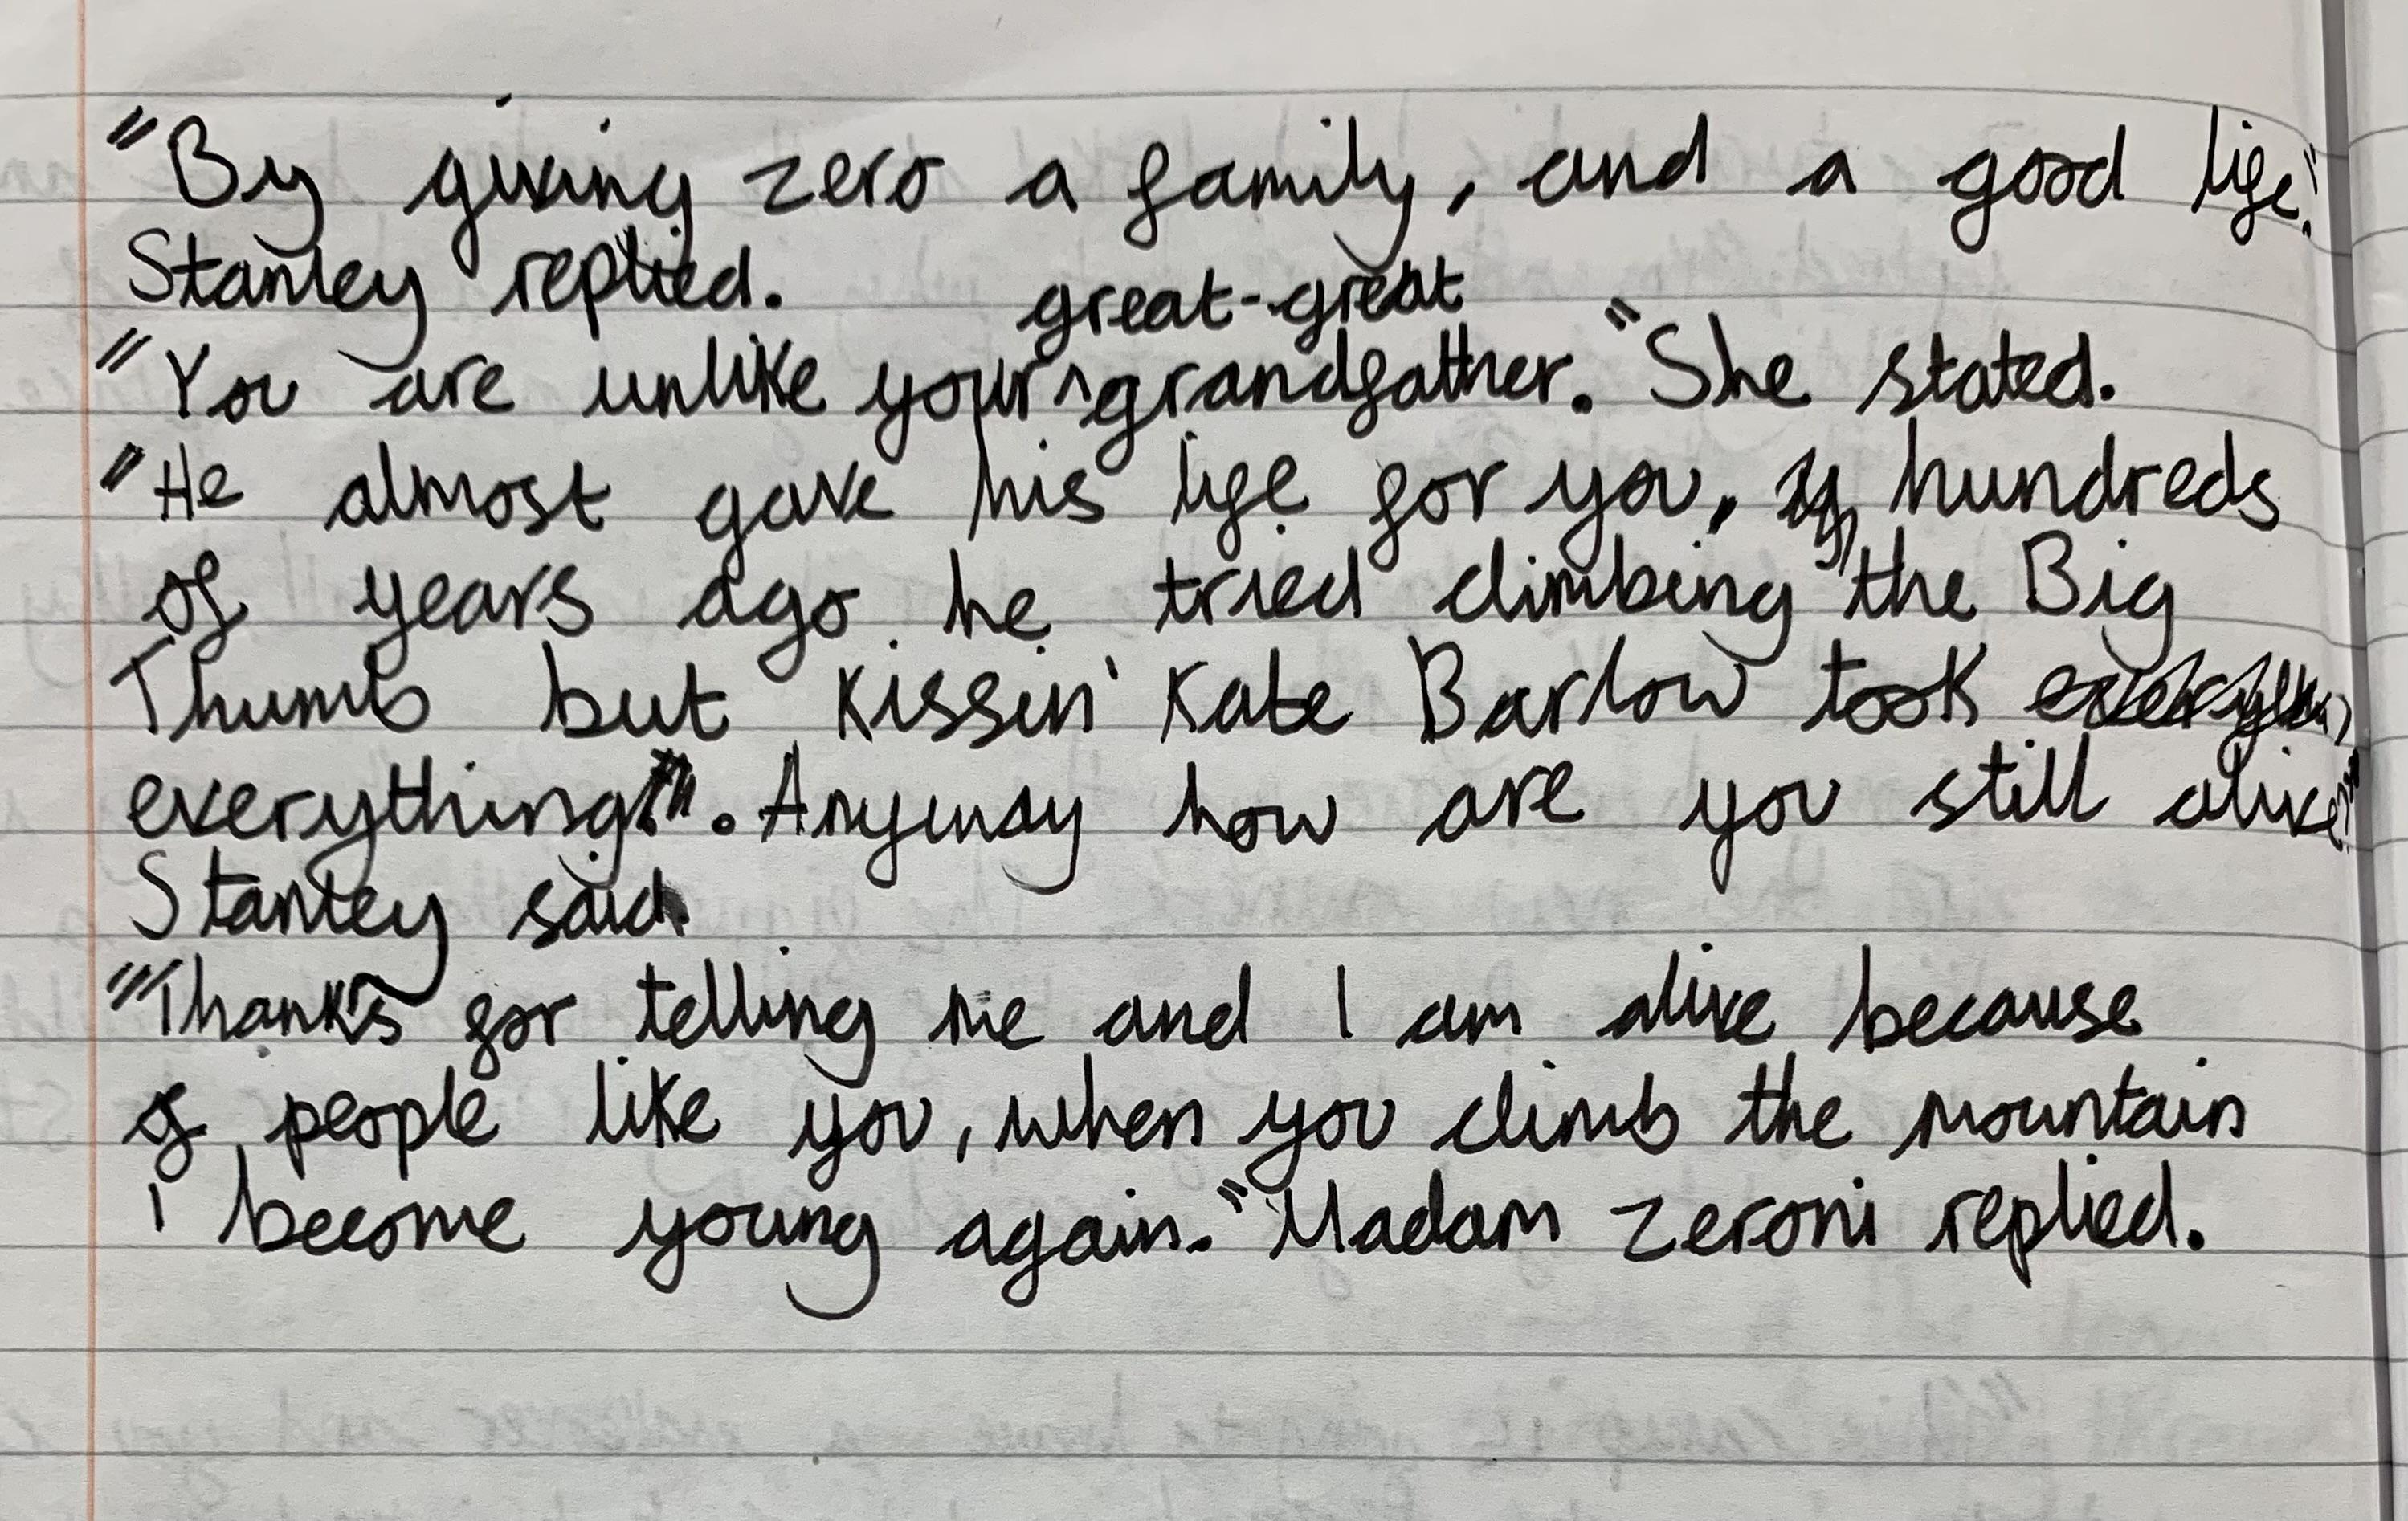 "By giving zero a family, and a good life."
Stanley replied.
"You are unlike your great-great grandfather." She stated.
"He almost gave his life for you, hundreds
of years ago he tried climbing the Big
Thumb but Kissin' Kate Barlow took
everything. Anyway how are you still alive?"
Stanley said.
"Thanks for telling me and I am alive because
of people like you, when you climb the mountain
I become young again." Madam Zeroni replied.